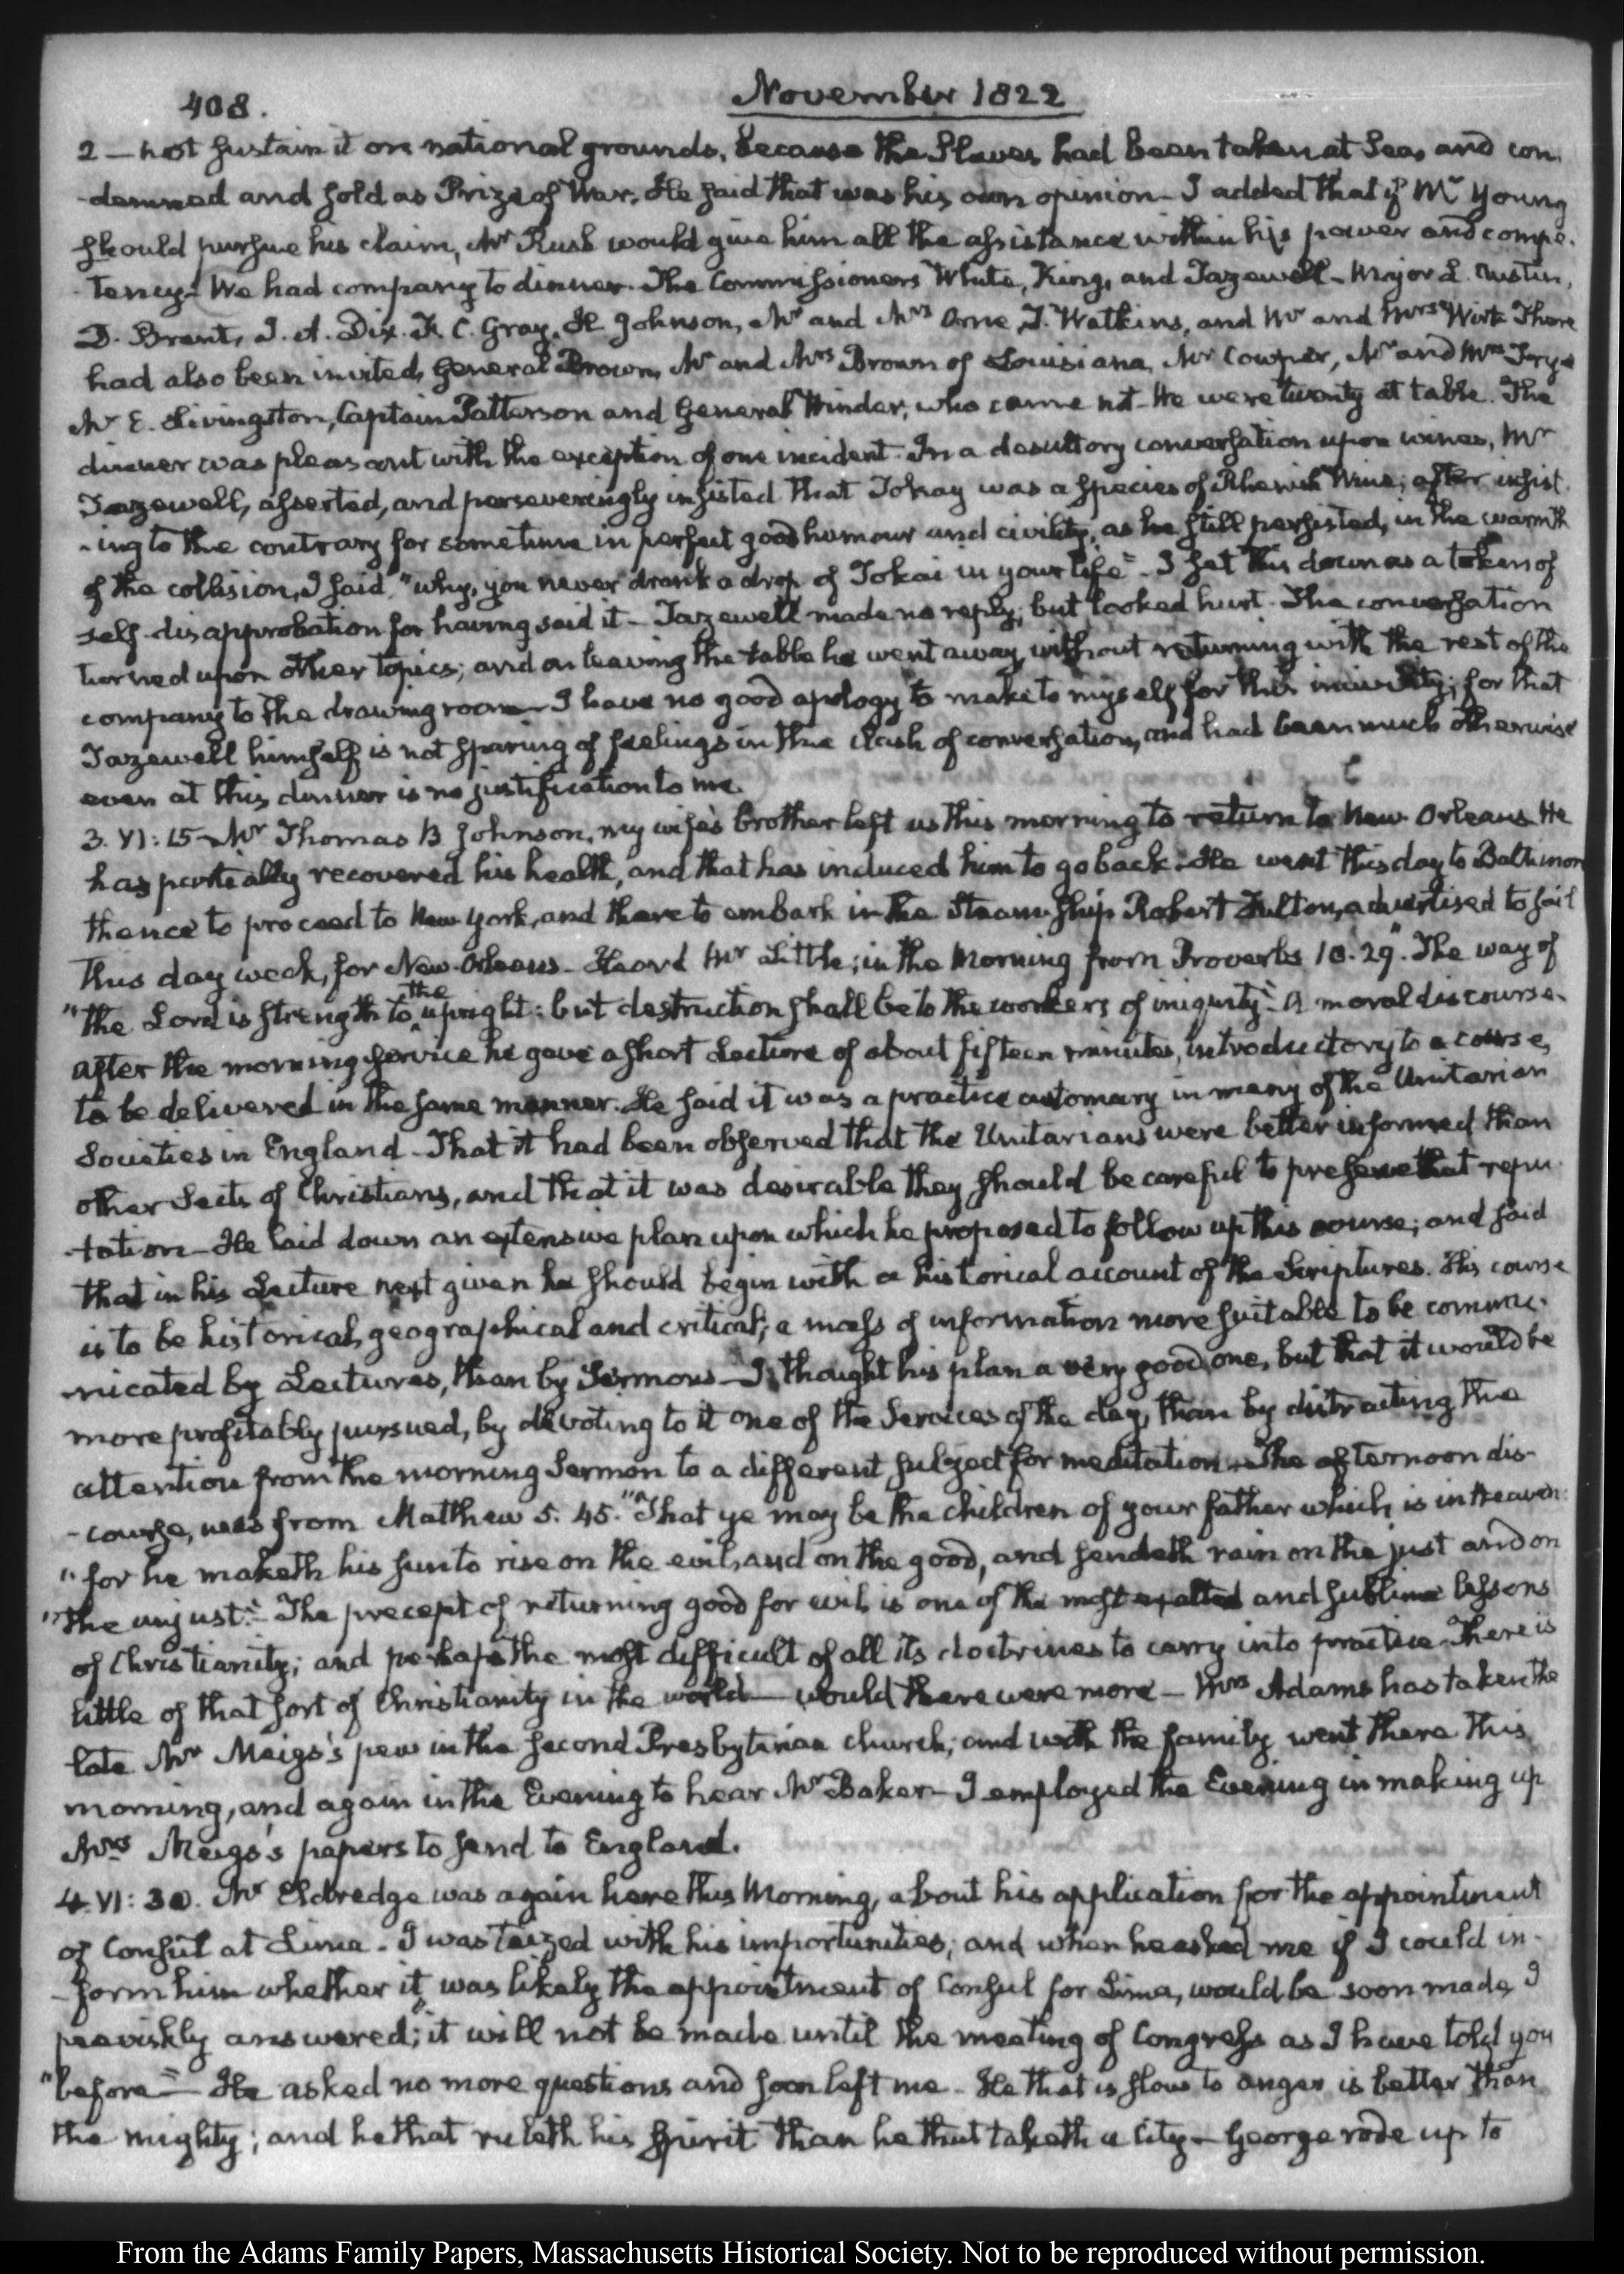 408.
November 1822
2 — not sustain it on national grounds, because the Slaves had been taken at Sea, and con-
-demned and sold as Prize of War. He said that was his own opinion — I added that if Mr Young
should pursue his claim, Mr Rush would give him all the assistance within his power and compe-
-tency — We had company to dinner. The Commissioners White, King, and Tazewell — Major L. Austin,
D. Brent, J. A. Dix. F. C. Gray, H Johnson, Mr and Mrs Orne, T. Watkins, and Mr and Mrs Wirt. There
had also been invited, General Brown, Mr and Mrs Brown of Louisiana, Mr Cowper, Mr and Mrs Frye
Mr E. Livingston, Captain Patterson and General Winder, who came not — We were twenty at table. The
dinner was pleasant with the exception of one incident. In a desultory conversation upon wines, Mr
Tazewell, asserted, and perseveringly insisted that Tokay was a species of Rhenish Wine; after insist-
-ing to the contrary for sometime in perfect good humour and civility, as he still persisted, in the warmth
of the collision, I said, "why, you never drank a drop of Tokai in your life" — I set this down as a token of
self-disapprobation for having said it — Tazewell made no reply; but looked hurt. The conversation
turned upon other topics; and on leaving the table he went away, without returning with the rest of the
company to the drawing room — I have no good apology to make to myself for this incivility; for that
Tazewell himself is not sparing of feelings in the clash of conversation, and had been much otherwise
even at this dinner is no justification to me.
3. VI: 15 — Mr Thomas B Johnson, my wife's brother left us this morning to return to New-Orleans. He
has partially recovered his health, and that has induced him to go back. He went this day to Baltimore
thence to proceed to New-York, and there to embark in the Steam-Ship Robert Fulton, advertised to sail
this day week, for New-Orleans — Heard Mr Little; in the Morning from Proverbs 10. 29. "The way of
"the Lord is strength to the upright: but destruction shall be to the workers of iniquity" — A moral discourse.
after the morning service he gave a short Lecture of about fifteen minutes, introductory to a course,
to be delivered in the same manner. He said it was a practice customary in many of the Unitarian
Societies in England — That it had been observed that the Unitarians were better informed than
other Sects of Christians, and that it was desirable they should be careful to preserve that repu-
-tation — He laid down an extensive plan upon which he proposed to follow up this course; and said
that in his Lecture next given he should begin with a historical account of the Scriptures. His course
is to be historical, geographical and critical; a mass of information more suitable to be commu-
-nicated by Lectures, than by Sermons — I thought his plan a very good one, but that it would be
more profitably pursued, by devoting to it one of the Services of the day, than by distracting the
attention from the morning Sermon to a different subject for meditation. The afternoon dis-
-course, was from Matthew 5. 45. "That ye may be the children of your father which is in Heaven:
"for he maketh his sun to rise on the evil, and on the good, and sendeth rain on the just and on
"the unjust." — The precept of returning good for evil, is one of the most exalted and sublime lessons
of Christianity; and perhaps the most difficult of all its doctrines to carry into practice — There is
little of that sort of Christianity in the world — would there were more — Mrs Adams has taken the
late Mr Meigs's pew in the second Presbyterian church; and with the family went there this
morning, and again in the Evening to hear Mr Baker — I employed the Evening in making up
Mrs Meigs's papers to send to England.
4. VI: 30. Mr Eldredge was again here this Morning, about his application for the appointment
of Consul at Lima — I was teized with his importunities; and when he asked me if I could in-
-form him whether it was likely the appointment of Consul for Lima, would be soon made, I
peevishly answered; "it will not be made until the meeting of Congress as I have told you
"before" — He asked no more questions and soon left me — He that is slow to anger is better than
the mighty; and he that ruleth his spirit than he that taketh a city — George rode up to
From the Adams Family Papers, Massachusetts Historical Society. Not to be reproduced without permission.